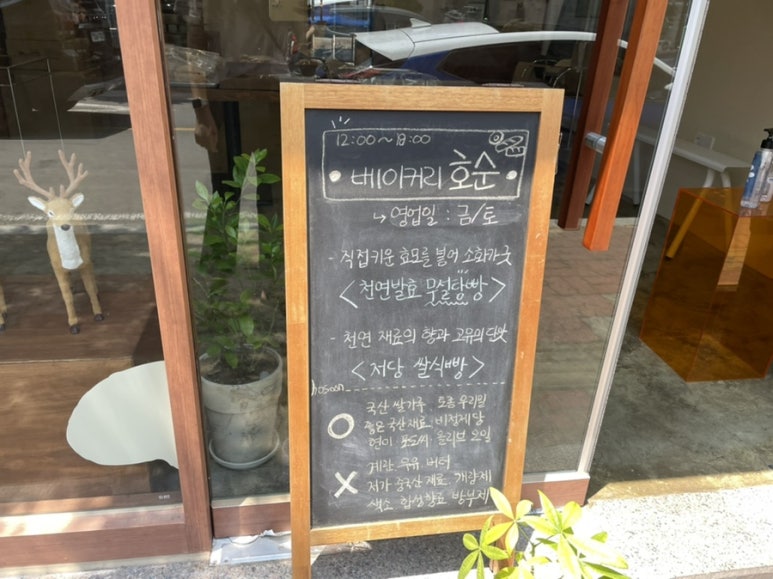 12:00~18:00
베이커리 호순
↳ 영업일 : 금/토
- 직접키운 효모를 넣어 소화가 굿
<천연발효 무설탕빵>
- 천연 재료의 향과 고유의 단맛
<저당 쌀식빵>
hosoon
O
국산 쌀가루. 토종 우리밀
좋은 국산재료. 비정제당
현미 포도씨. 올리브 오일
X
계란 우유 버터
저가 중국산 재료. 개량제
색소 합성향료 방부제